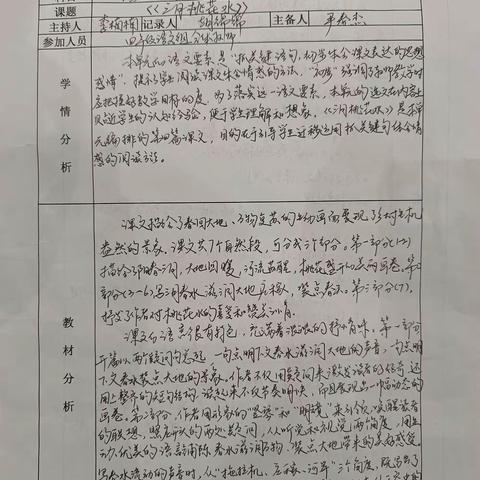 课题 《三月桃花水》
主持人 李梅梅 记录人 主备人
参加人员 四年级语文组全体教师
学情分析
本单元的语文要素是“抓关键语句,初步体会课文表达的思想
感情”,提示了学生阅读课文体会情感的方法,“初步”强调了教师教学时
应把握好教学目标的度,为了落实这一语文要素,本单元的选文在内容上
贴近学生的认知经验,便于学生理解和想象,《三月桃花水》是本单
元编排的第四篇课文,目的在于引导学生迁移运用抓关键句体会情
感的阅读方法。
教材分析
课文描绘了春回大地、万物复苏的生动画面展现了乡村生机
盎然的景象。课文共7个自然段,可分成三个部分。第一部分(1-2)
描绘了阳春三月,大地回暖,河流苏醒,桃花盛开的美丽画卷。第二
部分(3-6)写三月春水滋润大地万物,装点春天。第三部分(7),
抒发了作者对桃花水的喜爱和赞美之情。
课文的语言很有特色,充满着浓浓的抒情意味。第一部分
开篇以两个疑问句总起,一句点明下文春水滋润大地的声音,一句点明
下文春水装点大地的景象。作者不仅用疑问来激发读者的好奇,还
用上整齐的短句结构,读起来不仅节奏明快,而且展现出一幅动态的
画卷。第二部分,作者用形象的“竖琴”和“明镜”来引领,唤醒读者
的联想,照应开头的两处疑问,从听觉和视觉两个角度,用生
动优美的语言铺陈春水滋润万物、装点大地带来的美好感受。
写春水流动的声音时,从“拖拉机、